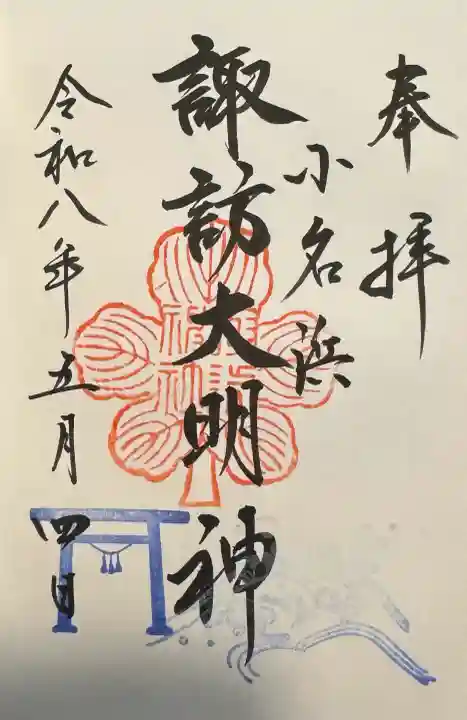 奉拝
小名浜
諏訪大明神
令和八年五月四日